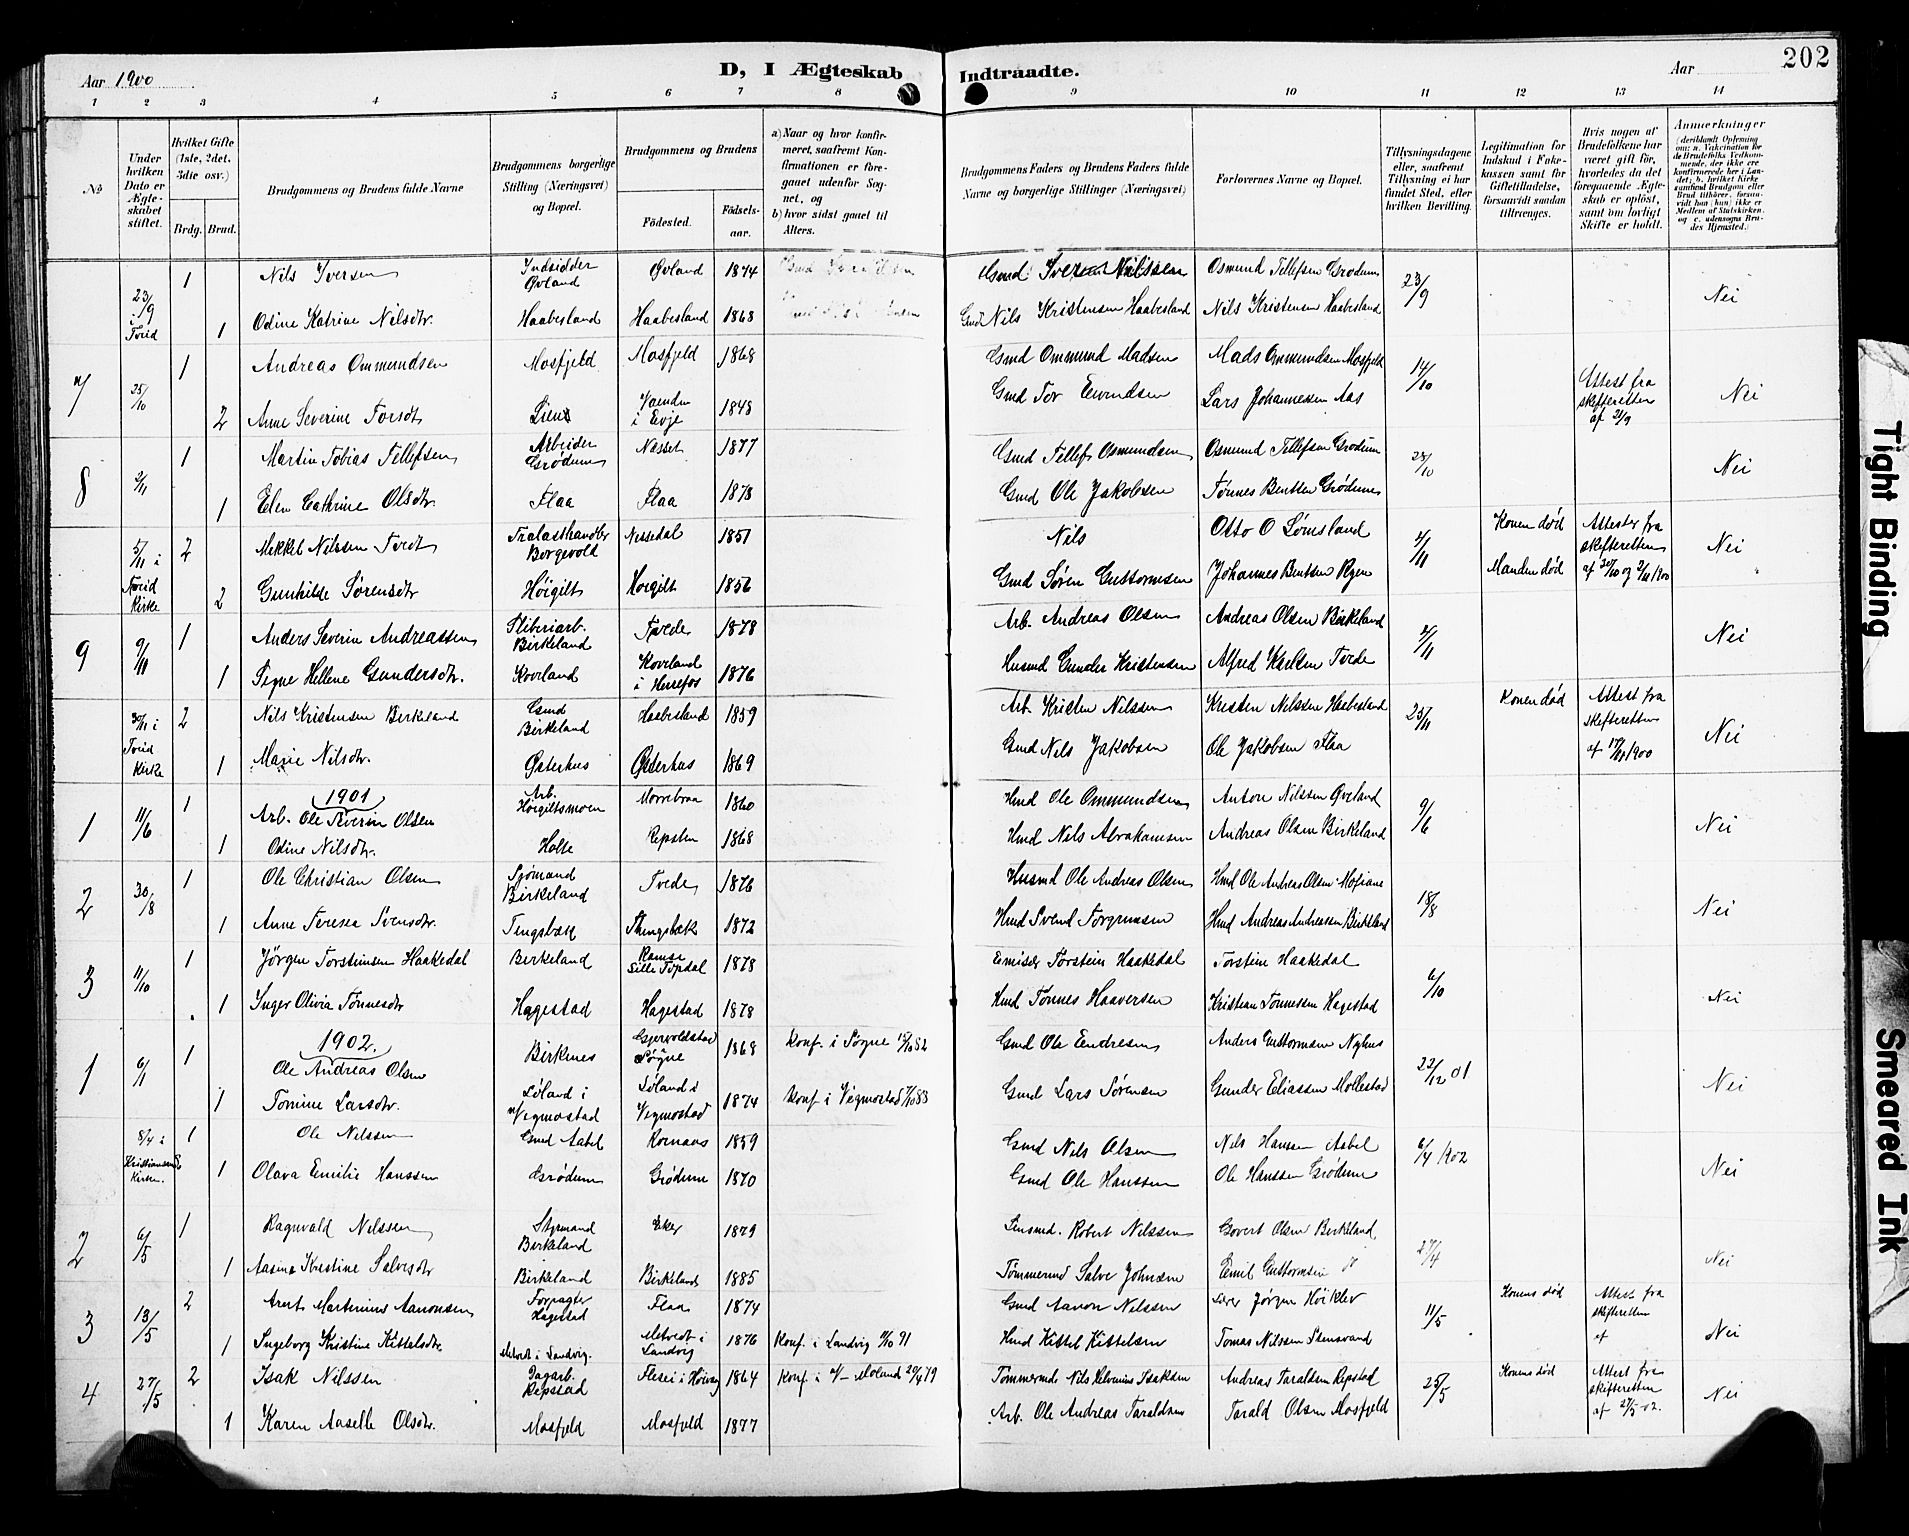 Aar 1900
D, I Ægteskab Indtraadte.
Aar
202
1 2 3 4 5 6 7 8 9 10 11 12 13 14
No
Under hvilken Dato er Ægteskabet stiftet.
Hvilket Gifte (1ste, 2det, 3die osv.)
Brdg. Brud.
Brudgommens og Brudens fulde Navne
Brudgommens borgerlige Stilling (Næringsvei) og Bopæl.
Brudgommens og Brudens
Fødested.
Fødselsaar.
a) Naar og hvor konfirmeret, saafremt Konfirmationen er foregaaet udenfor Sognet, og
b) hvor sidst gaaet til Alters.
Brudgommens Faders og Brudens Faders fulde Navne og borgerlige Stillinger (Næringsvei)
Forlovernes Navne og Bopæl.
Tillysningsdagene eller, saafremt Tillysning ei har fundet Sted, efter hvilken Bevilling.
Legitimation for Indskud i Enkekassen samt for Giftetilladelse, forsaavidt saadan tiltrænges.
Hvis nogen af Brudefolkene har været gift før, hvorledes da det foregaaende Ægteskab er opløst, samt om lovligt Skifte er holdt.
Anmerkninger
23/9 i Tveid 1 Nils Iversen Indsidder Øvland Øvland 1874 Gmd Iver Nilssen Osmund Tellefsen Grødum 23/9 Nei
1 Odine Katrine Nilsdtr. Haabesland Haabesland 1868 Gmd Nils Kristensen Haabesland Nils Kristensen Haabesland
7 25/10 1 Andreas Ommundsen Mosfjeld Mosfjeld 1868 Gmd Ommund Madsen Mads Ommundsen Mosfjeld 14/10 Attest fra skifteretten af 21/9 Nei
2 Anne Severine Torsdt i Evje 1848 Gmd Tor Eivindsen Lars Johannessen Aas
8 2/11 1 Martin Tobias Tellefsen Arbeider Grødum Næsset 1877 Gmd Tellef Osmundsen Osmund Tellefsen Grødum 28/10 Nei
1 Elen Cathrine Olsdtr. Flaa Flaa 1878 Gmd Ole Jakobsen Tønnes Bentsen Grødum
5/11 i Tveid Kirke 2 Mikkel Nilssen Tvedt Trælasthandler Borgevold Nessedal 1851 Nils Otto O Lømsland 4/11 Konen død Attester fra skifteretten af 30/10 og 2/11 1900 Nei
2 Gunhilde Sørensdtr Høigilt Høigilt 1856 Gmd Søren Guttormsen Johannes Bentsen Ryen Manden død
9 9/11 1 Anders Severin Andreassen Sliberiarb. Birkeland Tvede 1878 Arb. Andreas Olsen Andreas Olsen Birkeland 4/11 Nei
1 Signe Hellene Gundersdtr. Kovland Kovland i Herrefos 1876 Husmd Gunder Kristensen Alfred Tvede
30/11 i Tveid Kirke 2 Nils Kristensen Birkeland Gmd Birkeland Haabesland 1859 Arb. Kristen Nilssen Kristen Nilssen Haabesland 25/11 Konen død Attest fra skifteretten af 17/11 1900 Nei
1 Marie Nilsdtr. Østerhus Østerhus 1869 Gmd Nils Jakobsen Ole Jakobsen Flaa
1901
1 11/6 1 Arb. Ole Severin Olsen Arb. Høigiltsmoen 1860 Hmd Ole Ommundsen Anton Nilssen Øveland 9/6 Nei
1 Odine Nilsdtr. Holte Repsten 1868 Hmd Nils Abrahamsen Andreas Olsen Birkeland
2 30/8 1 Ole Christian Olsen Sjømand Birkeland Tvede 1876 Husmd Ole Andreas Olsen Hmd Ole Andreas Olsen Mofiane 18/8 Nei
1 Anne Teresea Svensdtr. Tingsbæk Thingsbæk 1872 Hmd Svend Torgrimsen Hmd Andreas Andreassen Birkeland
3 11/10 1 Jørgen Torsteinsen Haakedal Birkeland Ramse Lille Topdal 1878 Emissær Torstein Haakedal Torstein Haakedal 6/10 Nei
1 Inger Olivia Tønnesdtr Hagestad Hagestad 1878 Hmd Tønnes Haaversen Kristian Tønnessen Hagestad
1902.
1 6/1 1 Ole Andreas Olsen Birkenes Gjervoldstad Søgne 1868 Konf. i Søgne 15/10 82 Gmd Ole Endresen Anders Guttormsen Nyhus 22/12 01 Nei
1 Tomine Larsdtr. Løland i Vegmostad Løland i Vegmostad 1874 Konf. i Vegmostad 7/10 88 Gmd Lars Sørensen Gunder Eliassen Mollestad
8/4 i Kristiansands Kirke. 1 Ole Nilssen Gmd Aabel 1859 Gmd Nils Olsen Nils Hansen Aabel 6/4 1902 Nei
1 Olava Emilie Hanssen Grødum Grødum 1870 Gmd Ole Hanssen Ole Hanssen Grødum
2 6/5 1 Ragnvald Nilssen Styrmand Birkeland Eker 1879 Robert Nilssen Govert Olsen Birkeland 27/4 Nei
1 Aasine Kristine Salvesdtr Birkeland Birkeland 1885 Tømmermd Salve Johnsen Emil Guttormsen
3 13/5 2 Arent Martinius Aanonsen Forpagter Hagestad Flaa 1874 Gmd Aanon Nilssen Lærer Jørgen Høiklev 11/5 Konens død Attest fra skifteretten af Nei
1 Ingeborg Kristine Kittelsdtr i Landvig. i Landvig 1876 Konf. i Landvig 91 Hmd Kittel Kittelsen Tomas Nilssen Stensvand
4 27/5 2 Isak Nilssen Dagarb. Repstad i Høivåg 1864 Konf. i V- Moland 20/4 79 Tømmermd Nils Isaksen Andreas Taraldsen Repstad 25/5 Konens død Attest fra skifteretten af 27/5 02. Nei
1 Karen Aaselle Olsdtr. Mosfjeld Mosfjeld 1877 Arb. Ole Andreas Taraldsen Tarald Olsen Mosfjeld
Tight Binding
Smeared Ink